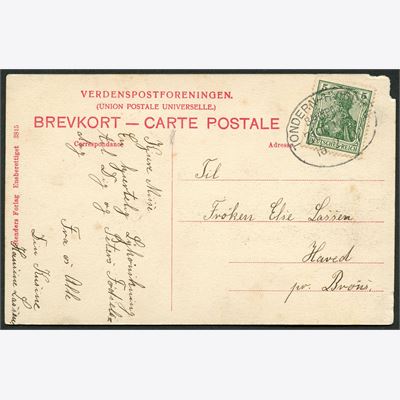 VERDENSPOSTFORENINGEN.
(UNION POSTALE UNIVERSELLE.)
BREVKORT — CARTE POSTALE
Correspondance
Adresse
TONDERN
5 5
DEUTSCHES REICH
Til
Frøken Else Lassen
Haved
pr. Brøns.
Kjære Mine
En hjertelig Lykønskning
til Dig og Peters
Fra os Alle
Din Kusine
Hanine Lassen
Forlag Eneberettiget 3815